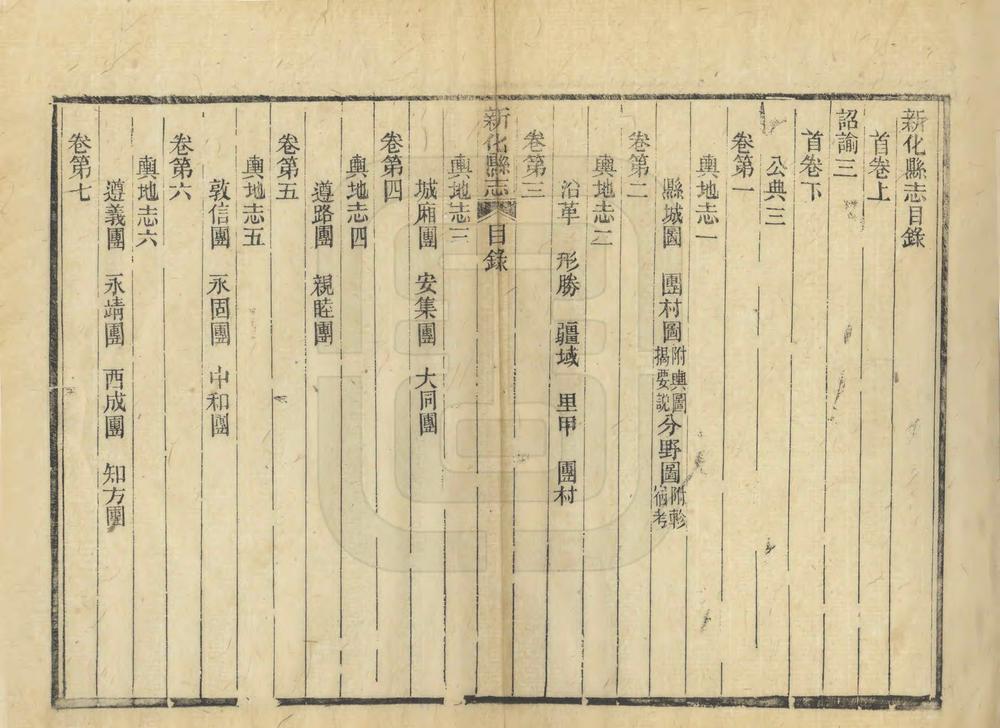 新化縣志目錄
首卷上
詔諭三
首卷下
公典三
卷第一
輿地志一
縣城圖 團村圖附輿圖揭要說分野圖附軫宿考
卷第二
輿地志二
沿革 形勝 疆域 里甲 團村
卷第三
新化縣志 目錄
輿地志三
城廂團 安集團 大同團
卷第四
輿地志四
遵路團 親睦團
卷第五
輿地志五
敦信團 永固團 中和團
卷第六
輿地志六
遵義團 永靖團 西成團 知方團
卷第七